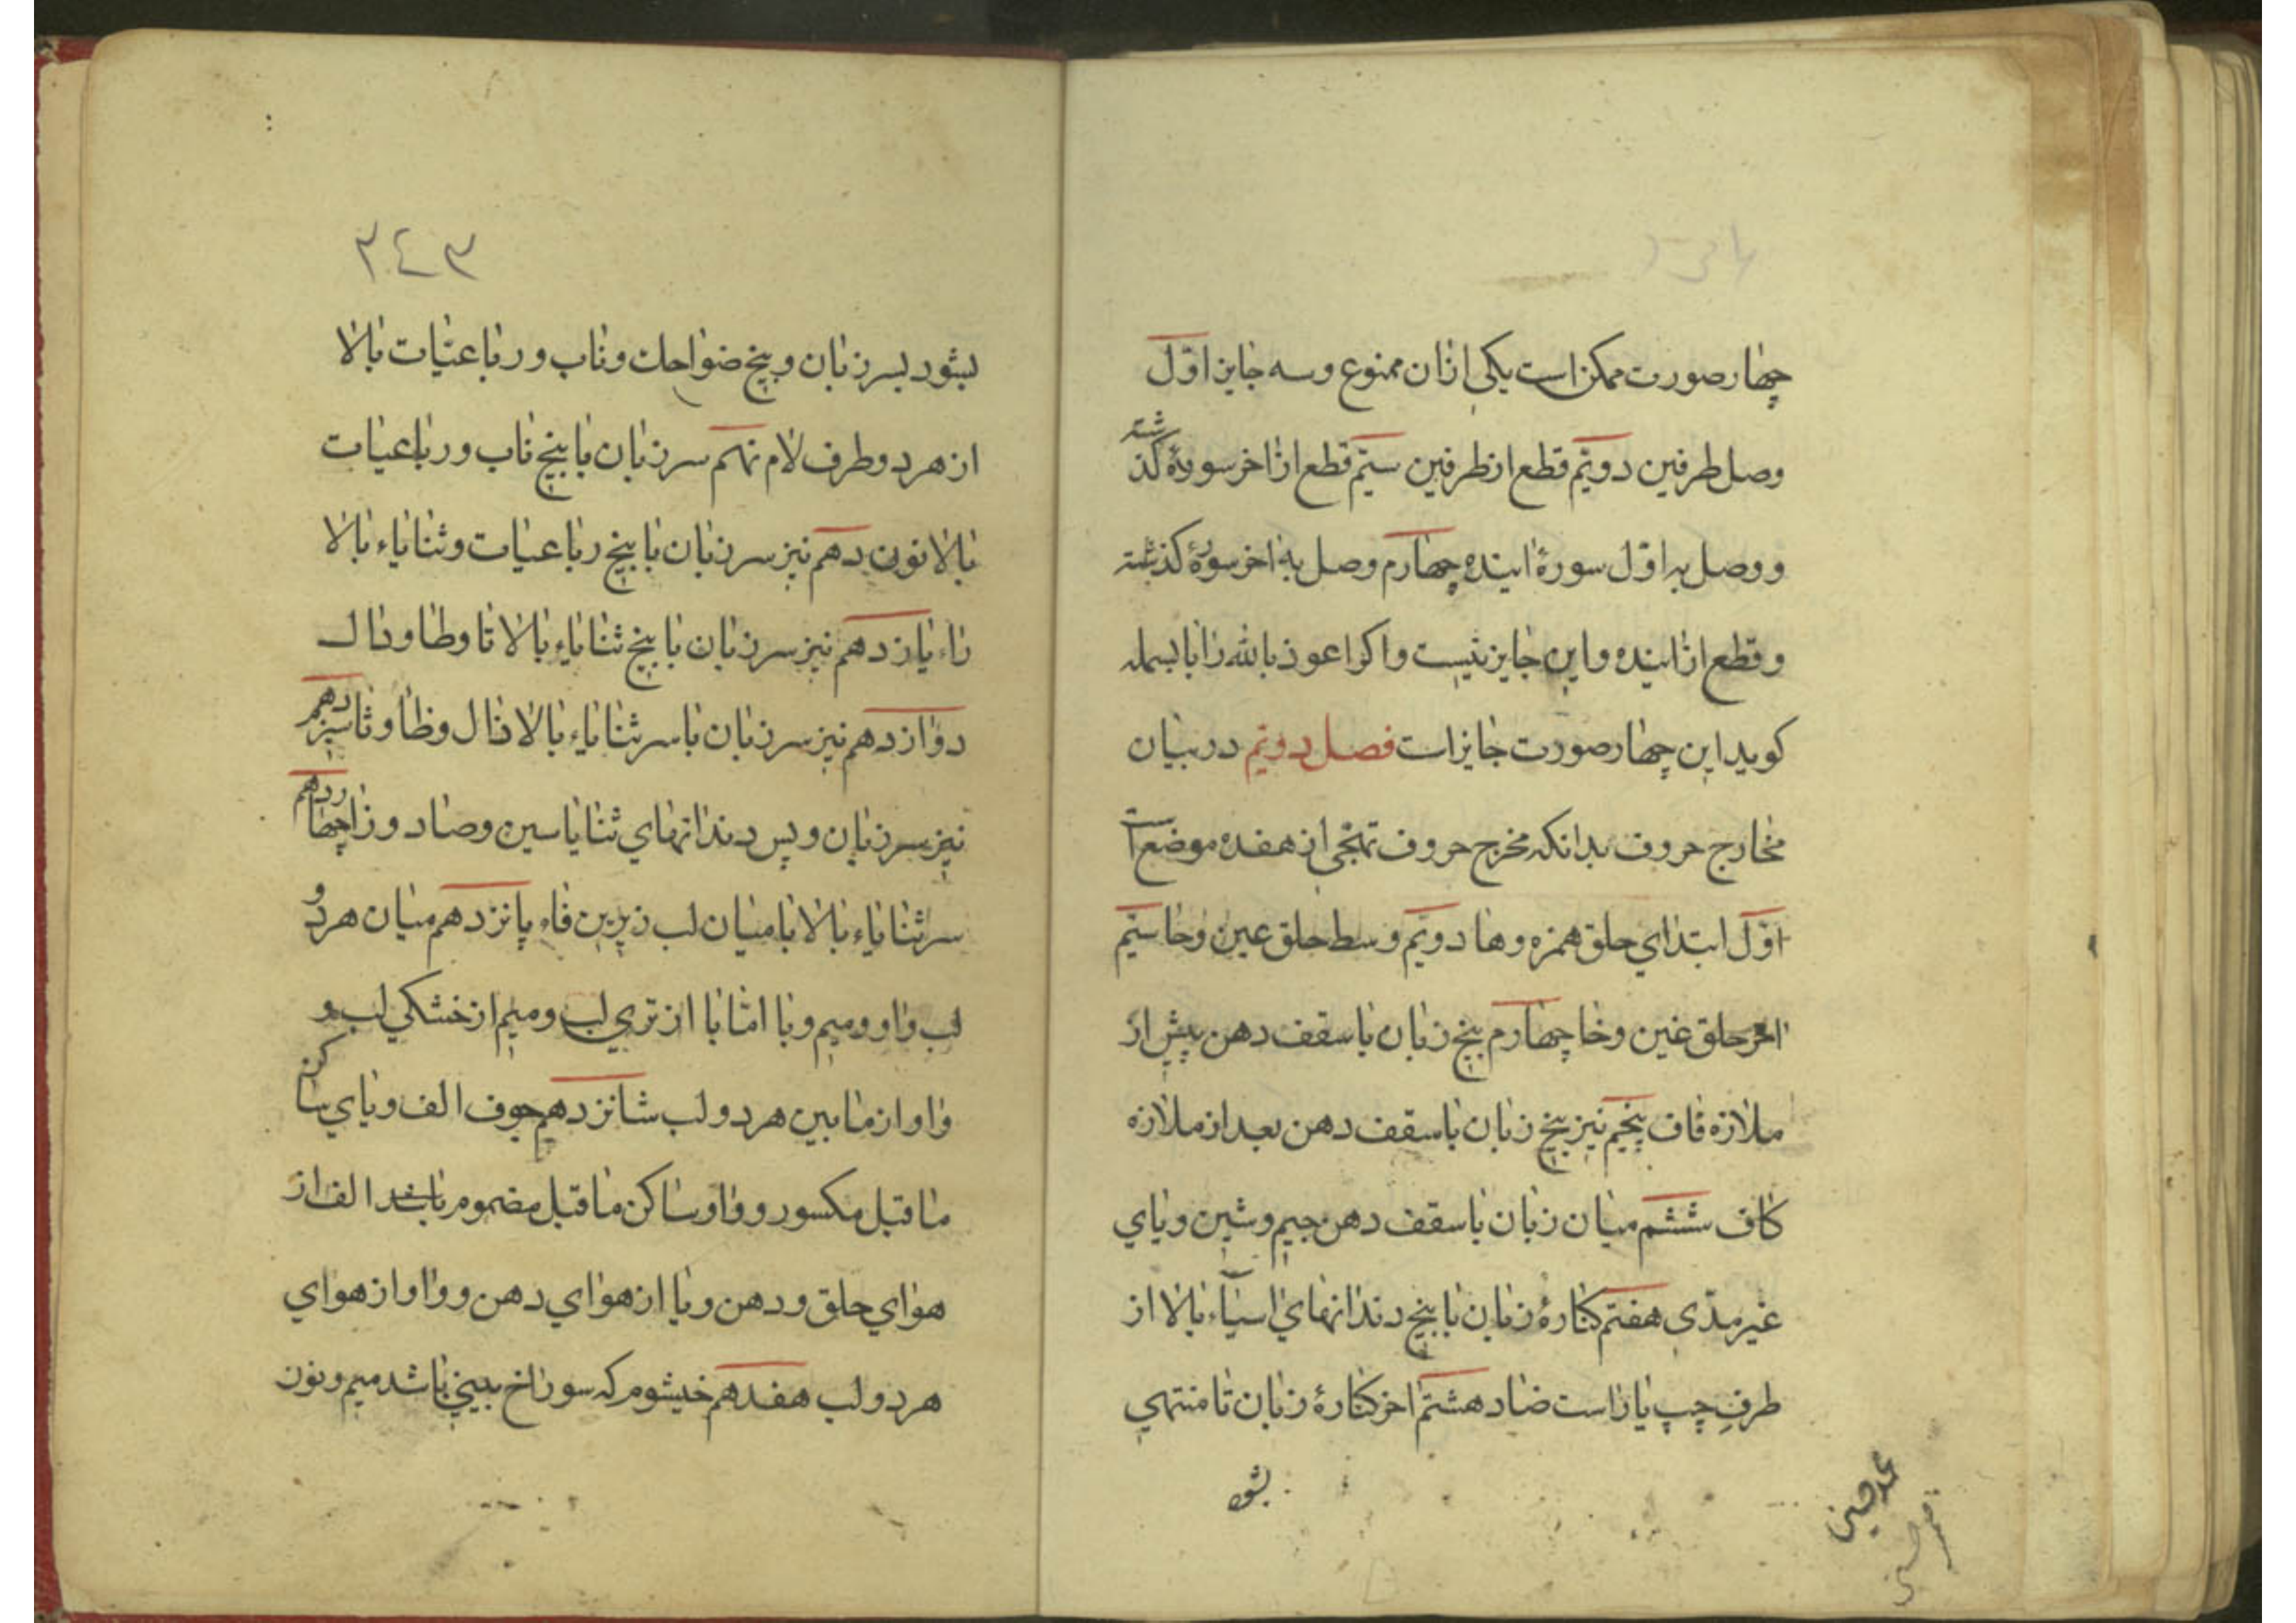 چهار صورت ممکن است یکی ازان ممنوع وسه جایز اوّل
وصل طرفین دویّم قطع از طرفین سیّم قطع از اخر سورهٔ کذشته
و وصل به اوّل سورهٔ اینده چهارم وصل به اخر سورهٔ کذشته
و قطع از اینده و این جایز نیست و اکر اعوذ بالله را با بسمله
کوید این چهار صورت جایز است فصل دویّم در بیان
مخارج حروف بدانکه مخرج حروف تهجّی از هفده موضع است
اوّل ابتدای حلق همزه وها دویّم وسط حلق عین وحا سیّم
اخر حلق غین وخا چهارم بیخ زبان با سقف دهن پیش از
ملازه قاف پنجم نیز بیخ زبان با سقف دهن بعد از ملازه
کاف ششم میان زبان با سقف دهن جیم وشین ویای
غیر مدّی هفتم کنارهٔ زبان با بیخ دندانهای اسیاء بالا از
طرفِ چپ یا راست ضاد هشتم اخر کنارهٔ زبان تا منتهی
بشو
محمد حسین
۳٤۳
بشود بسر زبان و بیخ ضواحک وناب ورباعیّات بالا
از هر دو طرف لام نهم سر زبان با بیخ ناب ورباعیات
بالا نون دهم نیز سر زبان با بیخ رباعیات وثنایاء بالا
راء یازدهم نیز سر زبان با بیخ ثنایاء بالا تا وطا ودال
دوازدهم نیز سر زبان با سر ثنایاء بالا ذال وظا وثا سیزدهم
نیز سر زبان و پس دندانهای ثنایا سین وصاد وزا چهاردهم
سر ثنایاء بالا با میان لب زیرین فاء پانزدهم میان هر دو
لب واو ومیم وبا امّا با از تری لب ومیم از خشکی لب و
واو از مابین هر دو لب شانزدهم جوف الف ویای ساکن
ماقبل مکسور وواو ساکن ماقبل مضموم باشد الف از
هوای حلق ودهن ویا از هوای دهن وواو از هوای
هر دو لب هفدهم خیشوم که سوراخ بینی باشد میم ونون